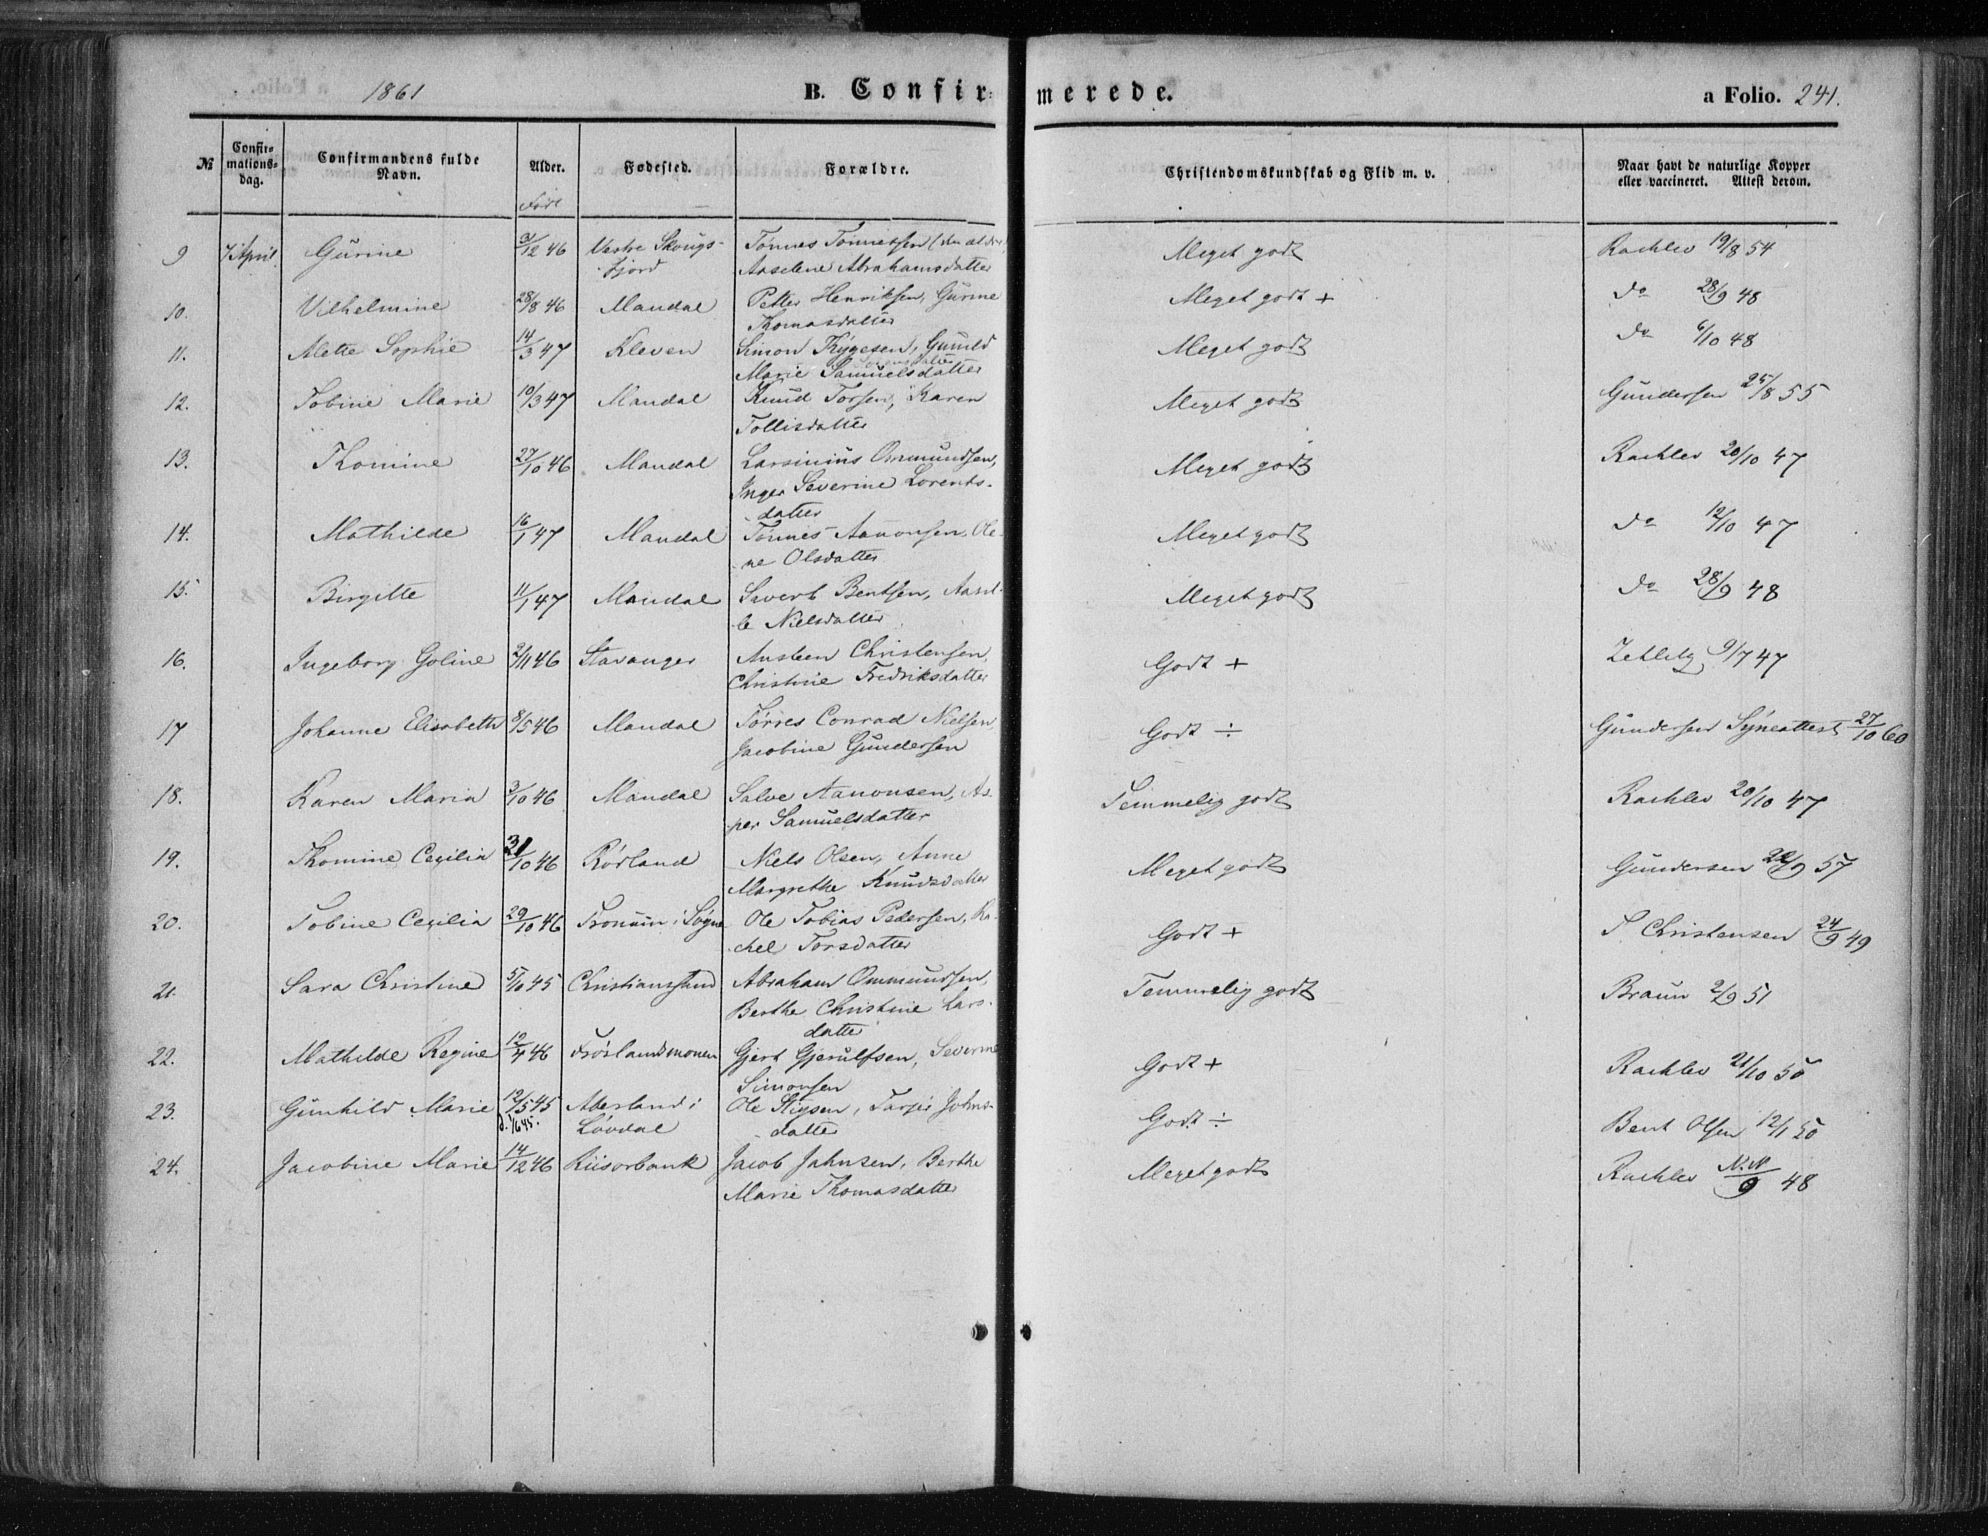 1861 B. Confirmerede. a Folio. 241.
№ Confirmationsdag. Confirmandens fulde Navn. Alder. Fødested. Forældre. Christendomskundskab og Flid m. v. Naar havt de naturlige Kopper eller vaccineret. Attest derom.
Født
9 7 April Gurine 3/12 46 Vestre Skougs- Tønnes Tønnesen (den ældre) Meget godt Rachlev 19/8 54
fjord Aaselene Abrahamsdatter
10. Vilhelmine 28/8 46 Mandal Petter Henriksen, Gurine Meget godt + do 28/9 48
Thomasdatter
11. Alette Sophie 14/3 47 Kleven Simon Trygesen, Gunild Meget godt do 6/10 48
Marie Samuelsdatter
12. Tobine Marie 10/3 47 Mandal Knud Torsen, Karen Meget godt Gundersen 25/8 55
Tollisdatter
13. Thomine 27/10 46 Mandal Larsinius Ommundsen, Meget godt Rachlev 20/10 47
Inger Severine Lorents-
datter
14. Mathilde 16/1 47 Mandal Tønnes Aanonsen, Ole- Meget godt do 12/10 47
ne Olsdatter
15. Birgitte 11/1 47 Mandal Sivert Bentsen, Aasel- Meget godt do 28/9 48
le Nielsdatter
16. Ingeborg Goline 2/11 46 Stavanger Austeen Christensen, Godt + Zetlitz 9/7 47
Christine Fredriksdatter
17 Johanne Elisabeth 8/5 46 Mandal Tørres Conrad Nielsen, Godt ÷ Gundersens Syneattest 27/10 60
Jacobine Gundersen
18. Karen Maria 3/10 46 Mandal Salve Aanonsen, As- Temmelig godt Rachlev 20/10 47
per Samuelsdatter
19. Thomine Cecilia 31/10 46 Rørland Niels Olsen, Anne Meget godt Gundersen 22/9 57
Margrethe Knudsdatter
20. Tobine Cecilia 29/10 46 Tronum i Søgne Ole Tobias Pedersen, Ra- Godt + T Christensen 24/9 49
chel Torsdatter
21. Sara Christine 5/10 45 Christianssand Abraham Ommundsen, Temmelig godt Braun 2/9 51
Berthe Christine Lars-
datter
22. Mathilde Regine 12/4 46 Frøslandsmonen Gjert Gjerulfsen, Severine Godt + Rachlev 21/10 50
Simonsen
23. Gunhild Marie 12/5 45 Aderland i Ole Stigsen, Tarjer Johns- Godt ÷ Bent Olsen 12/1 50
d. 1/6 45. Løvdal datter
24. Jacobine Marie 14/12 46 Riisorbank Jacob Jahnsen, Berthe Meget godt Rachlev N.N/9 48
Marie Thomasdatter